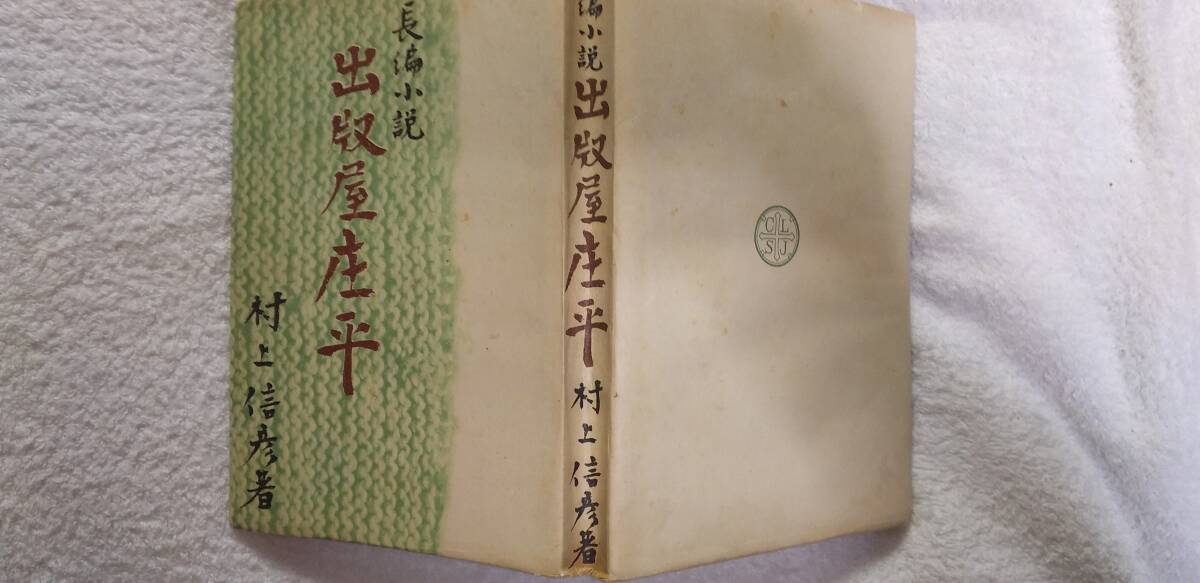 長編小説
出版屋庄平
村上信彦著
編小説 出版屋庄平 村上信彦著
C L
S J